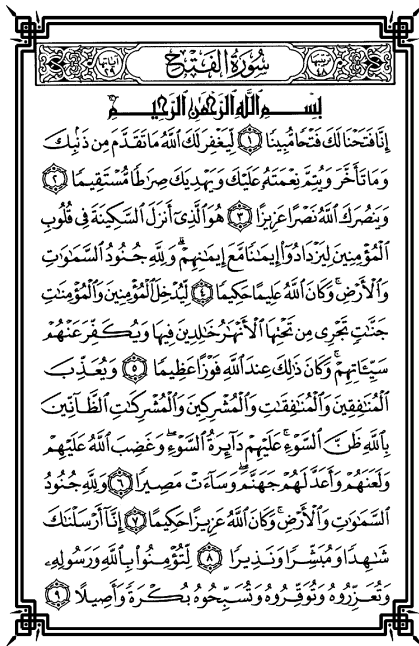 ترتيبها ٤٨ سُورَةُ الفَتْح آياتها ٢٩
بِسْمِ اللَّهِ الرَّحْمَٰنِ الرَّحِيمِ
إِنَّا فَتَحْنَا لَكَ فَتْحًا مُّبِينًا ١ لِّيَغْفِرَ لَكَ اللَّهُ مَا تَقَدَّمَ مِن ذَنۢبِكَ
وَمَا تَأَخَّرَ وَيُتِمَّ نِعْمَتَهُۥ عَلَيْكَ وَيَهْدِيَكَ صِرَٰطًا مُّسْتَقِيمًا ٢
وَيَنصُرَكَ اللَّهُ نَصْرًا عَزِيزًا ٣ هُوَ الَّذِىٓ أَنزَلَ السَّكِينَةَ فِى قُلُوبِ
الْمُؤْمِنِينَ لِيَزْدَادُوٓا۟ إِيمَٰنًا مَّعَ إِيمَٰنِهِمْ ۗ وَلِلَّهِ جُنُودُ السَّمَٰوَٰتِ
وَالْأَرْضِ ۚ وَكَانَ اللَّهُ عَلِيمًا حَكِيمًا ٤ لِّيُدْخِلَ الْمُؤْمِنِينَ وَالْمُؤْمِنَٰتِ
جَنَّٰتٍ تَجْرِى مِن تَحْتِهَا الْأَنْهَٰرُ خَٰلِدِينَ فِيهَا وَيُكَفِّرَ عَنْهُمْ
سَيِّـَٔاتِهِمْ ۚ وَكَانَ ذَٰلِكَ عِندَ اللَّهِ فَوْزًا عَظِيمًا ٥ وَيُعَذِّبَ
الْمُنَٰفِقِينَ وَالْمُنَٰفِقَٰتِ وَالْمُشْرِكِينَ وَالْمُشْرِكَٰتِ الظَّآنِّينَ
بِاللَّهِ ظَنَّ السَّوْءِ ۚ عَلَيْهِمْ دَآئِرَةُ السَّوْءِ ۖ وَغَضِبَ اللَّهُ عَلَيْهِمْ
وَلَعَنَهُمْ وَأَعَدَّ لَهُمْ جَهَنَّمَ ۖ وَسَآءَتْ مَصِيرًا ٦ وَلِلَّهِ جُنُودُ
السَّمَٰوَٰتِ وَالْأَرْضِ ۚ وَكَانَ اللَّهُ عَزِيزًا حَكِيمًا ٧ إِنَّآ أَرْسَلْنَٰكَ
شَٰهِدًا وَمُبَشِّرًا وَنَذِيرًا ٨ لِّتُؤْمِنُوا۟ بِاللَّهِ وَرَسُولِهِۦ
وَتُعَزِّرُوهُ وَتُوَقِّرُوهُ وَتُسَبِّحُوهُ بُكْرَةً وَأَصِيلًا ٩